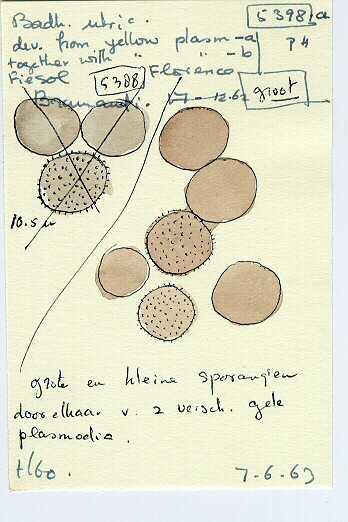 Badh. utric.
5398,a
dev. from yellow plasm-a
P 4
together with " " -b
Fiesol
5388
Florence
7-12-62
groot
10.5 µ
grote en kleine sporangien
door elkaar v. 2 versch. gele
plasmodia.
H60.
7-6-63